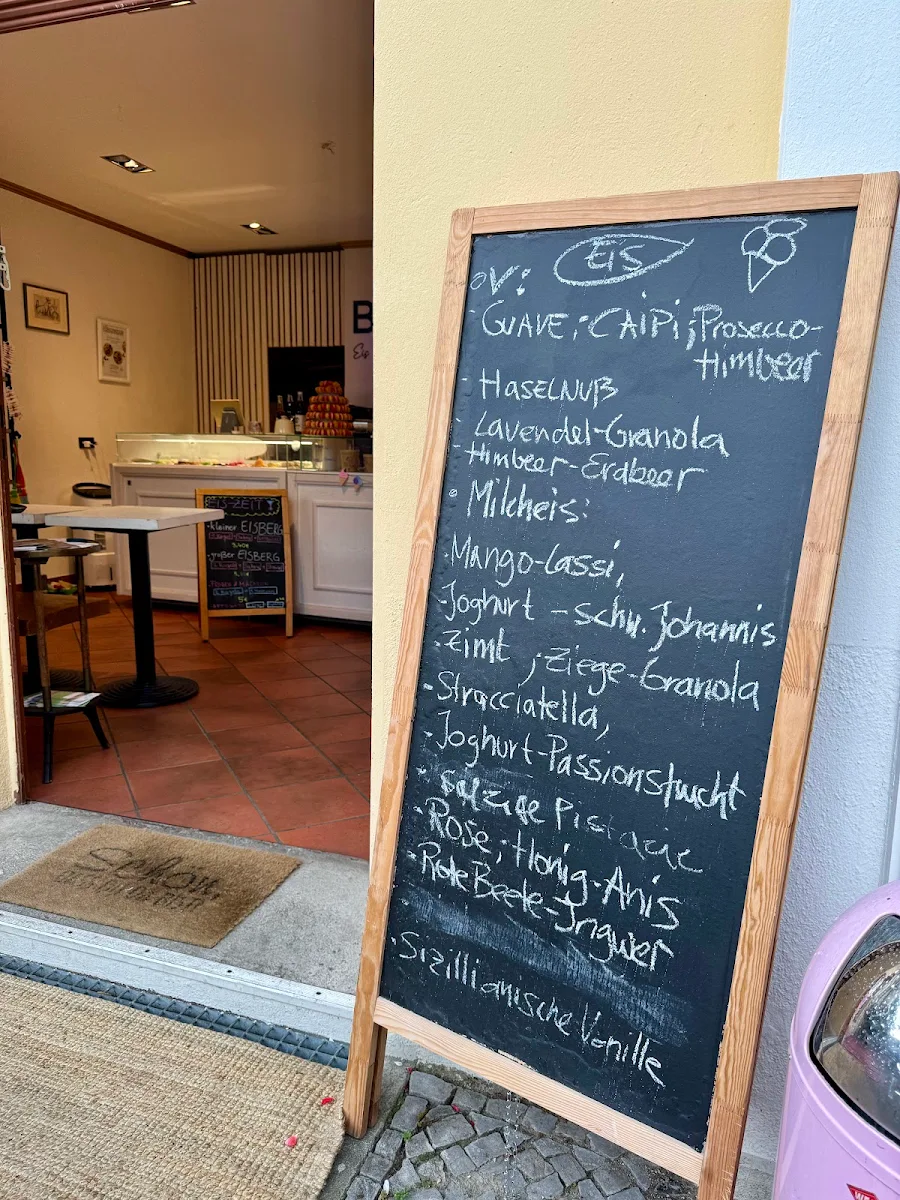 EIS
V:
- GUAVE; CAIPI; Prosecco-
Himbeer
- HASELNUß
- Lavendel-Granola
- Himbeer-Erdbeer
• Milcheis:
· Mango-Lassi,
- Joghurt - schw. Johannis
- Zimt ; Ziege-Granola
- Stracciatella,
- Joghurt-Passionsfrucht
· Salzige Pistazie
· Rose; Honig-Anis
· Rote Beete-Ingwer
· Sizillianische Vanille
B
EIS-ZEIT
-kleiner EISBERG
-großer EISBERG